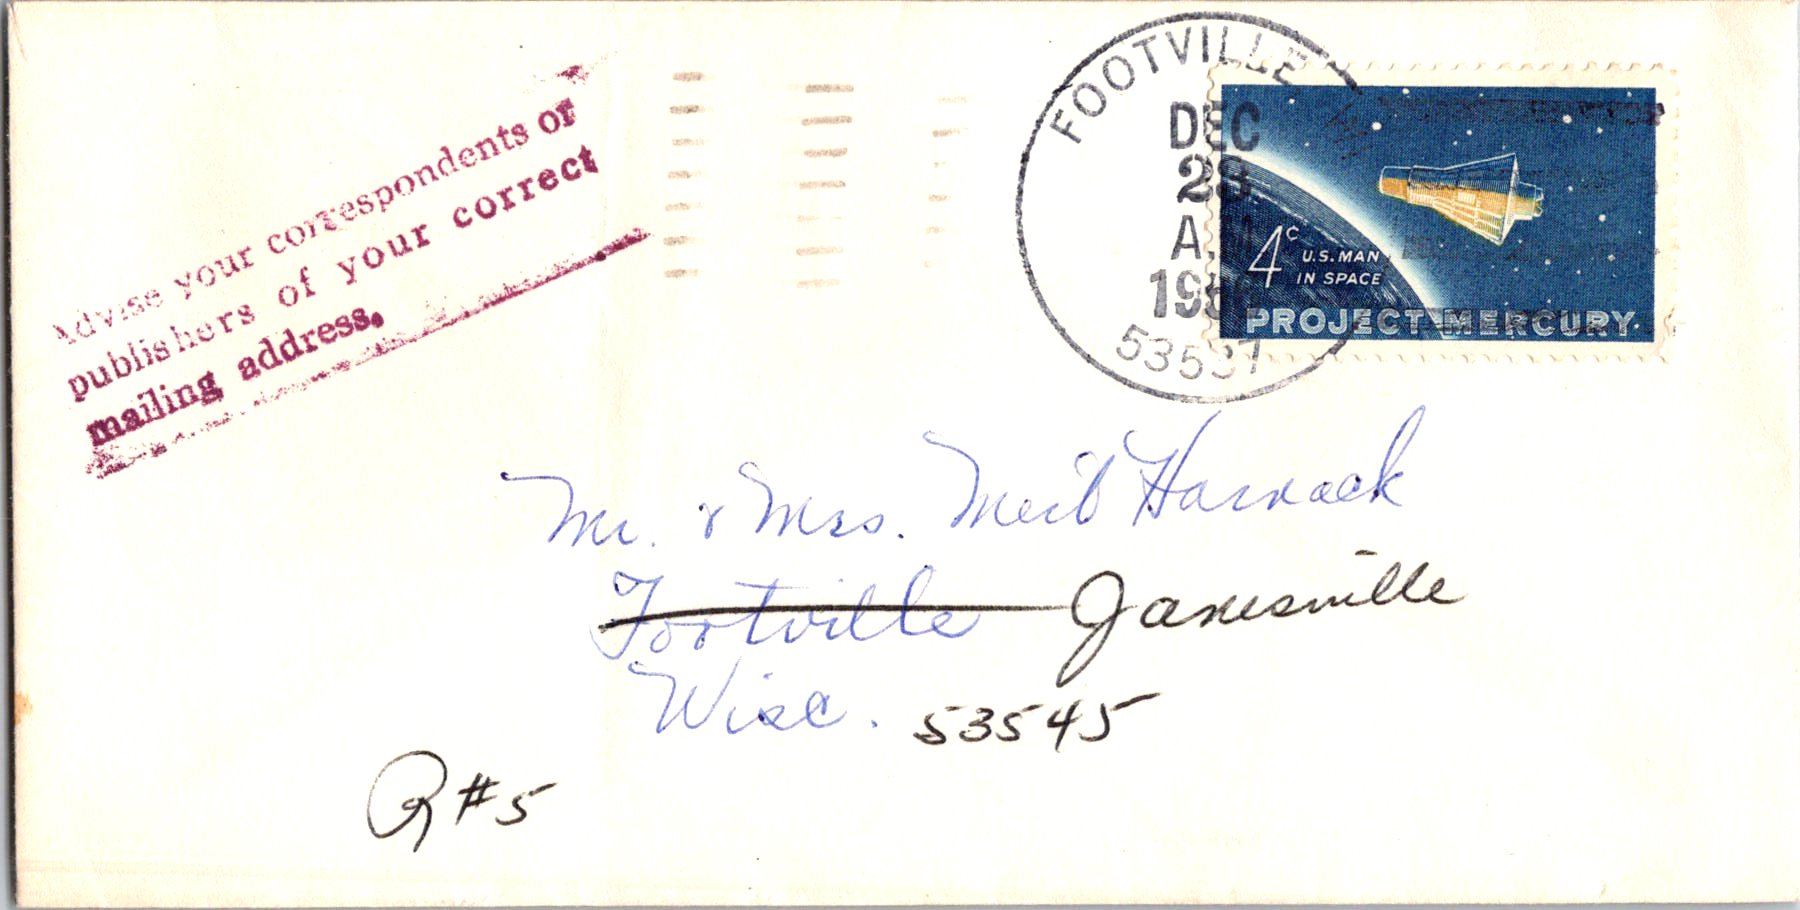 Advise your correspondents or
publishers of your correct
mailing address.
FOOTVILLE
DEC
28
A.
53537
4c U.S. MAN
IN SPACE
PROJECT MERCURY
Mr. & Mrs. Harnack
Footville Janesville
Wisc. 53545
R#5